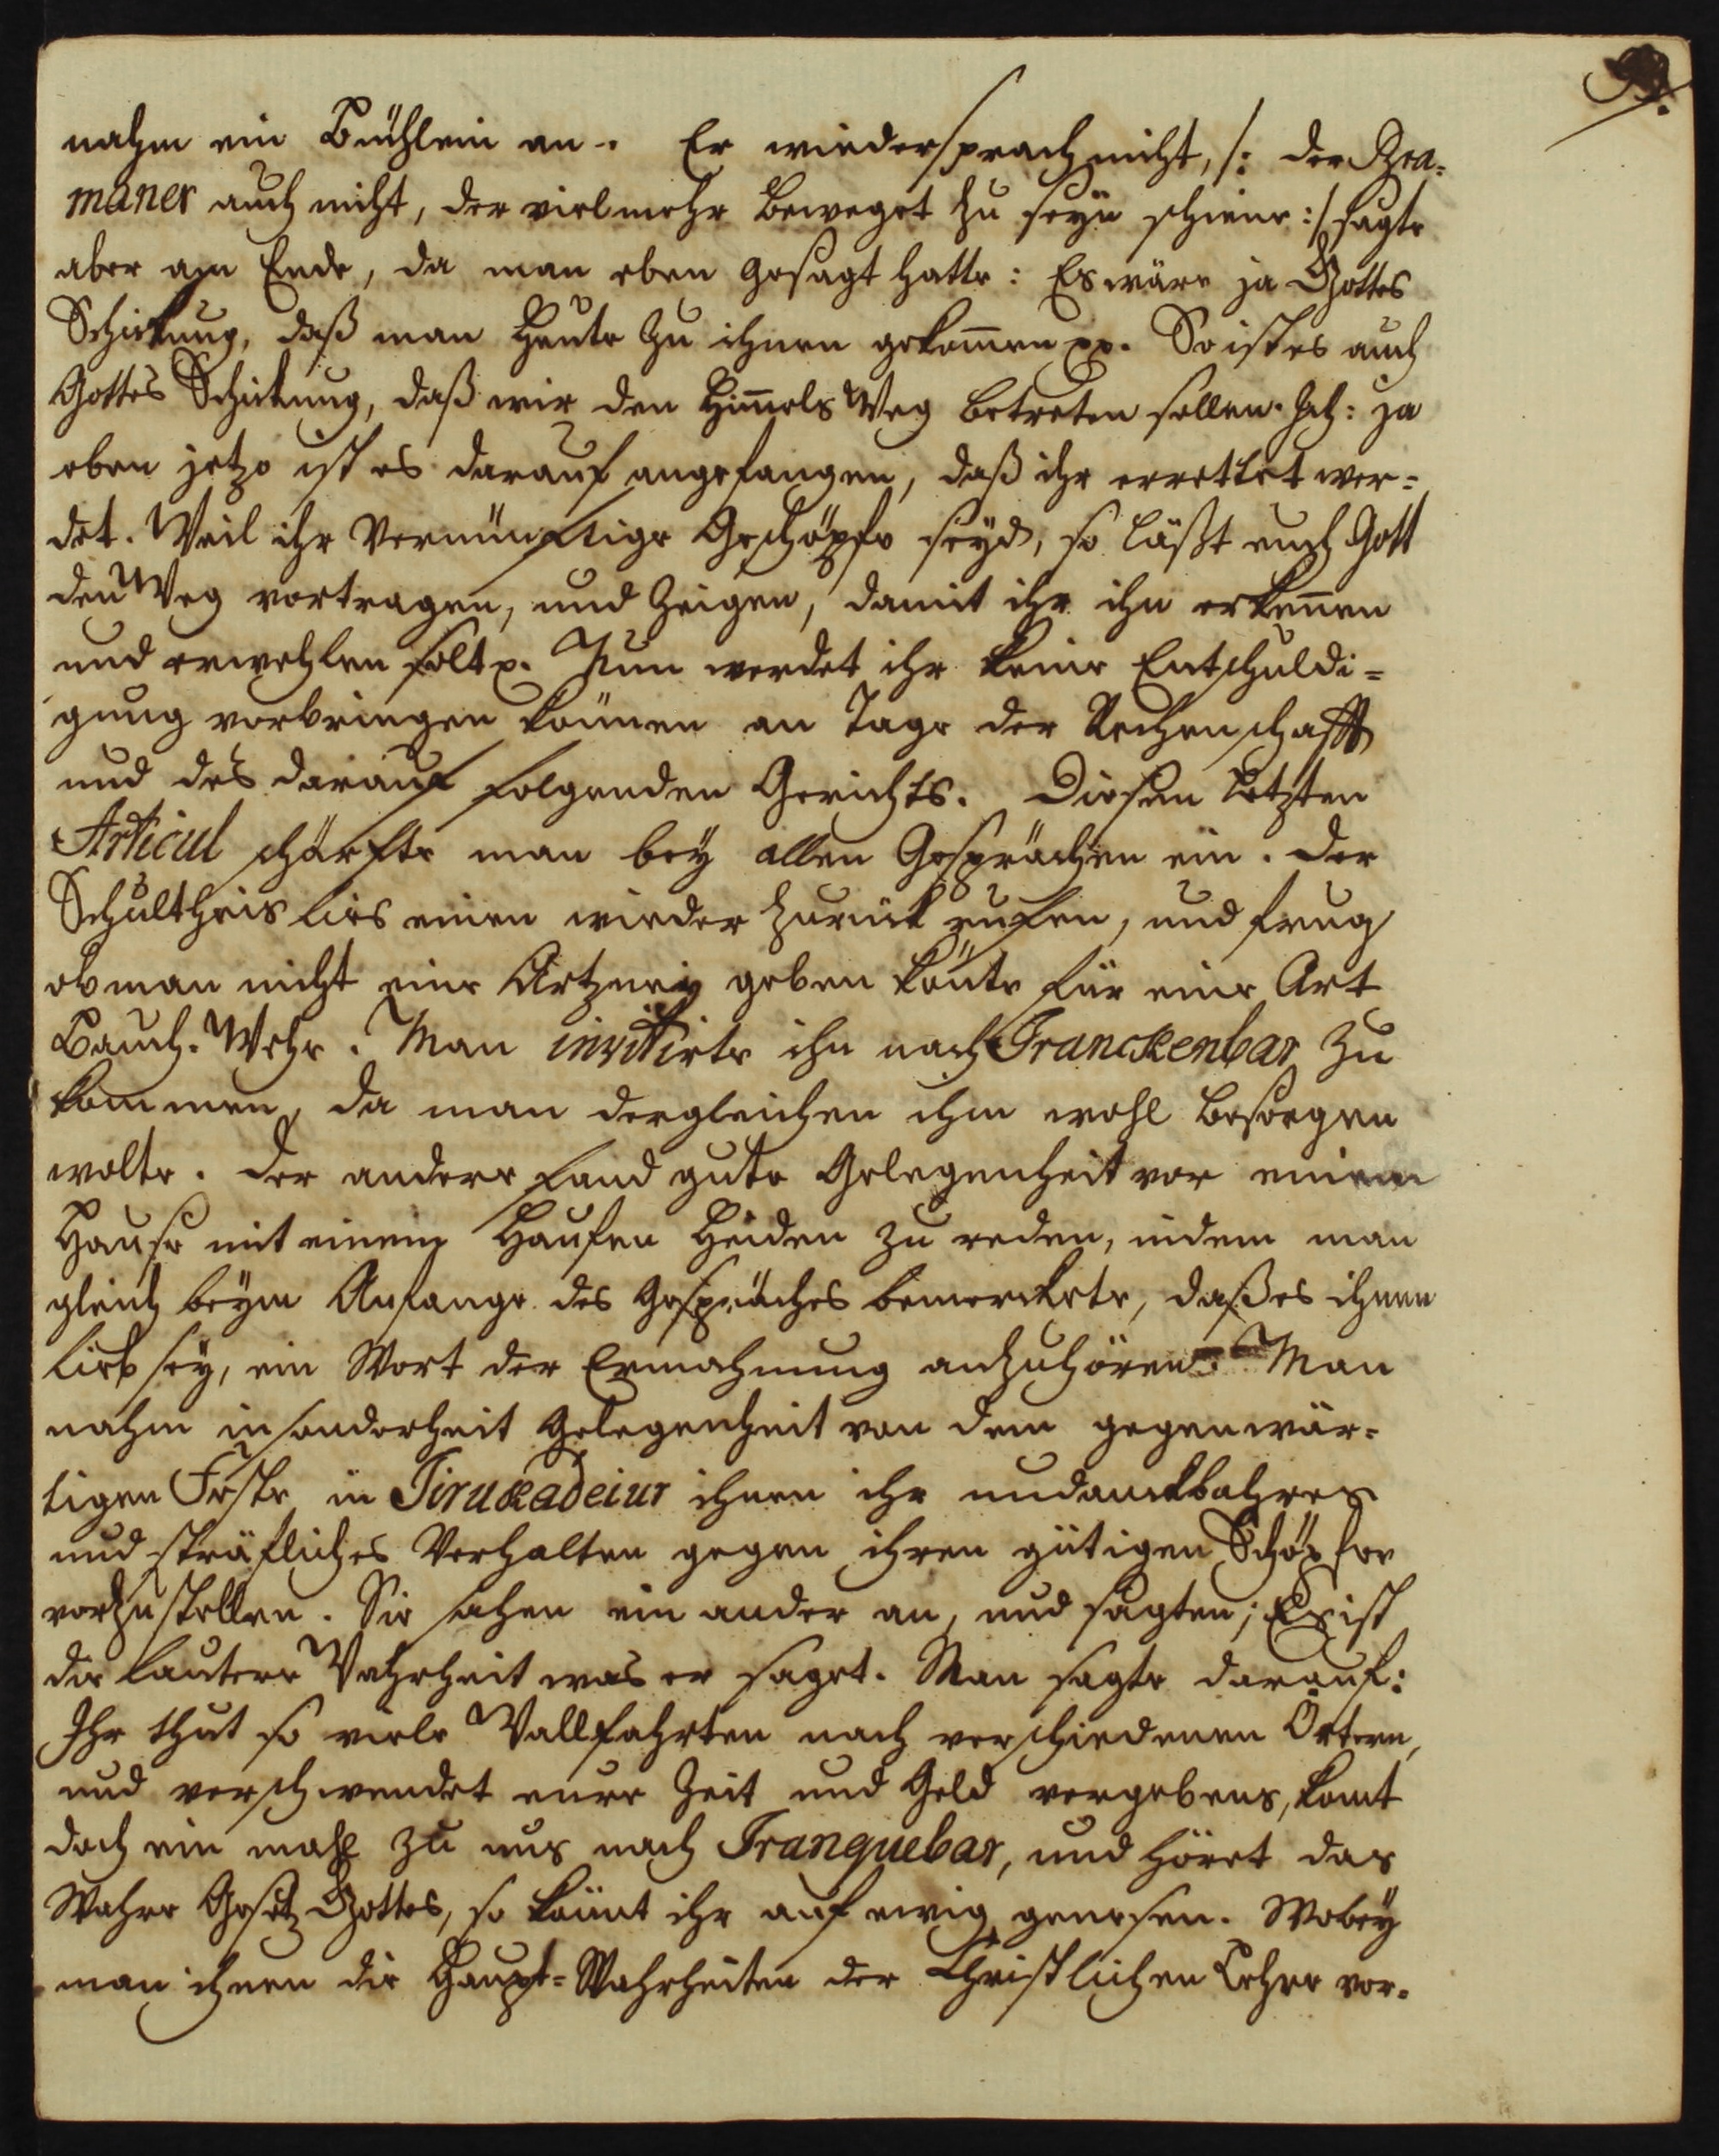 nahm ein Büchlein an. Er wiedersprach nicht, /: der Bra-
maner auch nicht, der vielmehr beweget zu seyn schiene :/ sagte
aber am Ende, da man eben gesagt hatte: Es wäre ja Gottes
Schickung, daß man heute zu ihnen gekom̄en pp. So ist es auch
Gottes Schickung, daß wir den Him̄els Weg betreten sollen. Ich: ja
eben jetzo ist es darauf angefangen, daß ihr errettet wer-
det. Weil ihr Vernünftige Geschöpfe seyd, so läßt euch Gott
den Weg vortragen, und zeigen, damit ihr ihn erken̄en
und erwehlen solt p. Nun werdet ihr keine Entschuldi-
gung vorbringen können an Tage der Rechenschafft
und des darauf folgenden Gerichts. Diesen letzten
Articul schärfte man bey allen Gesprächen ein. Der
Schultheis lies einen wieder zurück rufen, und frug
ob man nicht eine Artzney geben könte für eine Art
Bauch-Wehe. Man invitirte ihn nach Franckenbar zu
kommen, da man dergleichen ihm wohl besorgen
wolte. Der andere fand gute Gelegenheit vor einem
Hause mit einem Haufen Heiden zu reden, indem man
gleich beym Anfange des Gespräches bemerckete, daß es ihnen
lieb sey, ein Wort der Ermahnung anzuhören. Man
nahm insonderheit Gelegenheit von dem gegenwär-
tigen Feste in Tirukadeiur ihnen ihr undanckbahres
und sträfliches Verhalten gegen ihren gütigen Schöpfer
vorzustellen. Sie sahen ein ander an, und sagten; Es ist
die lautere Wahrheit was er saget. Man sagte darauf:
Ihr thut so viele Wallfahrten nach verschiedenen Örtern,
und verschwendet eure Zeit und Geld vergebens, komt
doch ein mahl zu uns nach Tranquebar, und höret das
Wahre Gesetz Gottes, so könnt ihr auf ewig genesen. Wobey
man ihnen die Haupt-Wahrheiten der Christlichen Lehre vor-